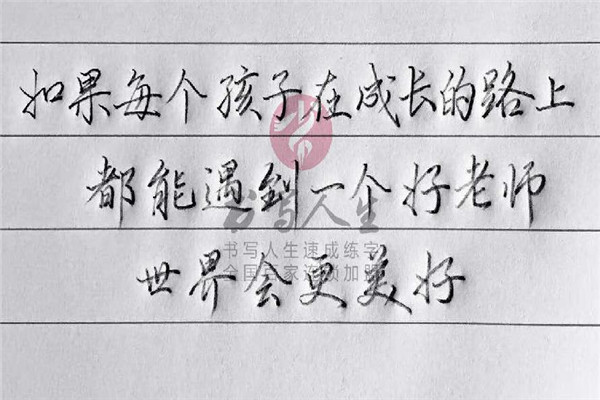 如果每个孩子在成长的路上
都能遇到一个好老师
书写人生
书写人生速成练字
全国百家连锁加盟
世界会更美好